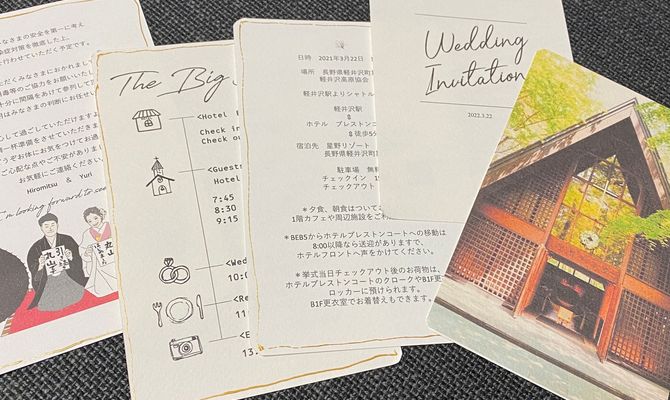 みなさまの安全を第一に考え
染症対策を徹底した上、
を行わせていただく予定です。
ただくみなさまにおかれまし
毒等のご協力をお願いいたし
十分に間隔をあけて参列して
はみなさまの判断にお任せい
心して過ごしていただけますよ
精一杯準備をさせていただきま
うぞお体にお気をつけてお過
ご心配な点やご不安がありまし
お気軽にご連絡ください。
Hiromitsu & Yuri
I'm looking forward to
The Big
<Hotel
Check in
Check ou
<Guests
Hotel
7:45
8:30
9:15
<Wed
10:0
<Re
11
<E
13.
日時 2021年3月22日
場所 長野県軽井沢町
軽井沢高原協会
軽井沢駅よりシャトル
軽井沢駅
ホテル ブレストンコート
徒歩5分
宿泊先 星野リゾート
長野県軽井沢町
駐車場 無料
チェックイン 15
チェックアウト
＊夕食、朝食はついてご
1階カフェや周辺施設をご利
＊BEB5からホテルブレストンコートへの移動は
8:00以降なら送迎がありますで、
ホテルフロントへ声をかけてください。
＊挙式当日チェックアウト後のお荷物は、
ホテルブレストンコートのクロークやB1F更
ロッカーに預けられます。
B1F更衣室でお着替えもできます。
Wedding
Invitation
2022.3.22